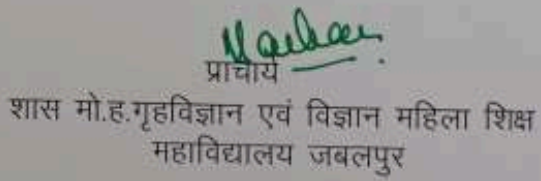 प्राचार्य
शास मो.ह.गृहविज्ञान एवं विज्ञान महिला शिक्ष
महाविद्यालय जबलपुर